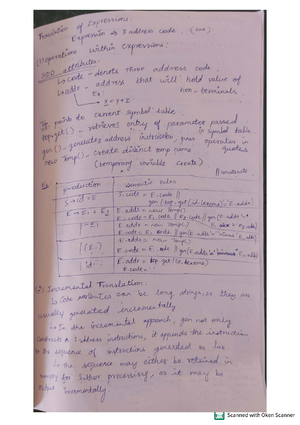 Translation of Expressions:
Expression → 3 address code.
(1) operations within expressions:
SDD attributes:
↳ code - denote three address code
↳ addr - address that will hold value of
Ex non-terminals
x = y + z
to current symbol table
top.get() → retrieves entry of parameter passed
in symbol table
gen() → generates address instruction, operator in
new Temp() → create distinct temp name
(temporary variable create)
Ex: production semantic rules
S → id = E S.code = E.code ||
gen (top.get(id.lexeme) '=' E.addr)
E → E1 + E2 E.addr = new Temp()
E.code = E1.code || E2.code || gen(E.addr '='
| - E1 E.addr = new Temp()
| (E1)
| id E.addr = top.get(id.lexeme)
E.code = ''
(2) Incremental Translation:
↳ Code attributes can be long strings, so they are
usually generated incrementally
↳ In the incremental approach, gen not only
construct a 3-address instructions, it appends the instruction
to the sequence of instructions generated so far
↳ The sequence may either be retained in
memory for further processing, or it may be
output incrementally.
Scanned with Oken Scanner